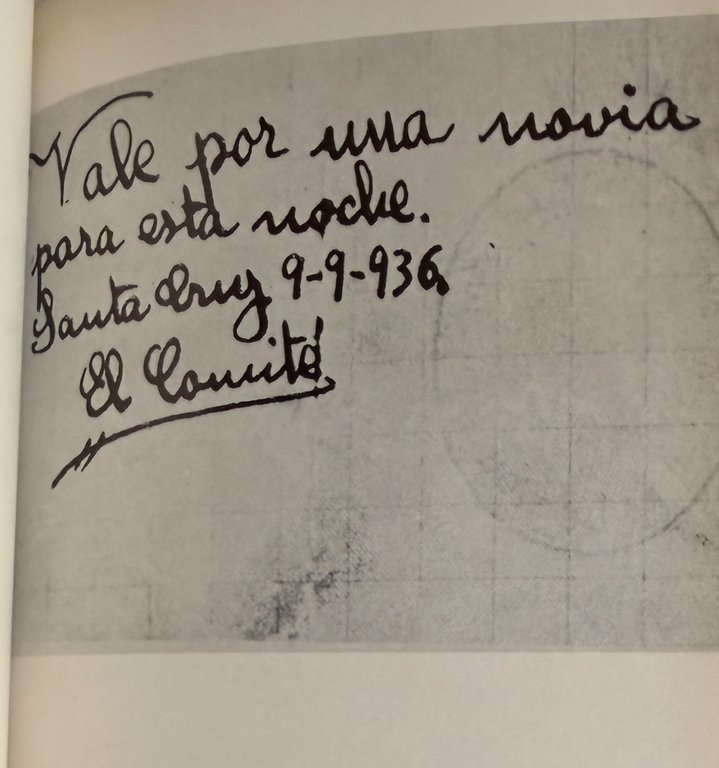 Vale por una novia
para esta noche.
Santa Cruz 9-9-936,
El Comité